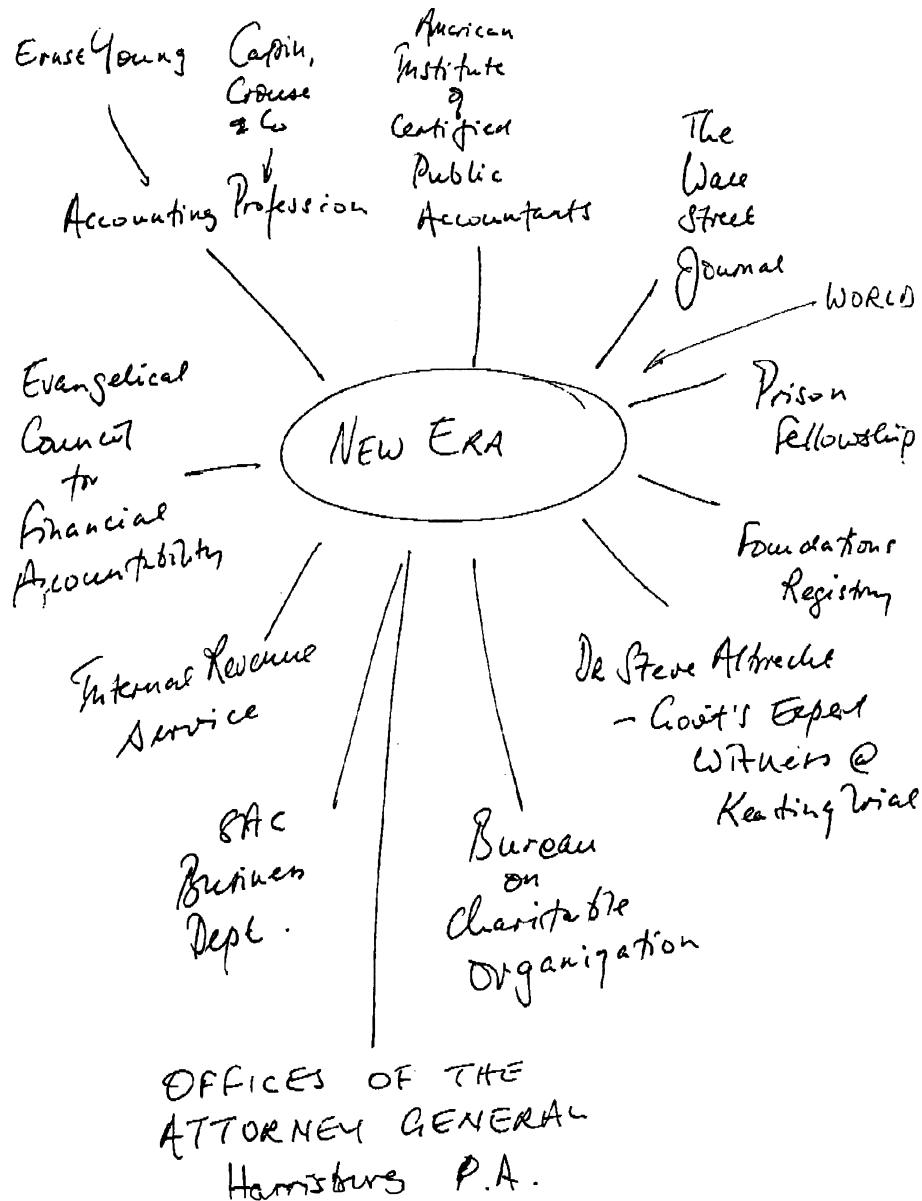 Ernst Young
Capin,
Crouse
& Co
American
Institute
of
Certified
Public
Accountants
The
Wall
Street
Journal
Accounting Profession
WORLD
Evangelical
Council
for
Financial
Accountability
NEW ERA
Prison
Fellowship
Foundations
Registry
Internal Revenue
Service
Dr Steve Albrecht
- Govt's Expert
Witness @
Keating Trial
SAC
Business
Dept.
Bureau
on
Charitable
Organization
OFFICES OF THE
ATTORNEY GENERAL
Harrisburg P.A.